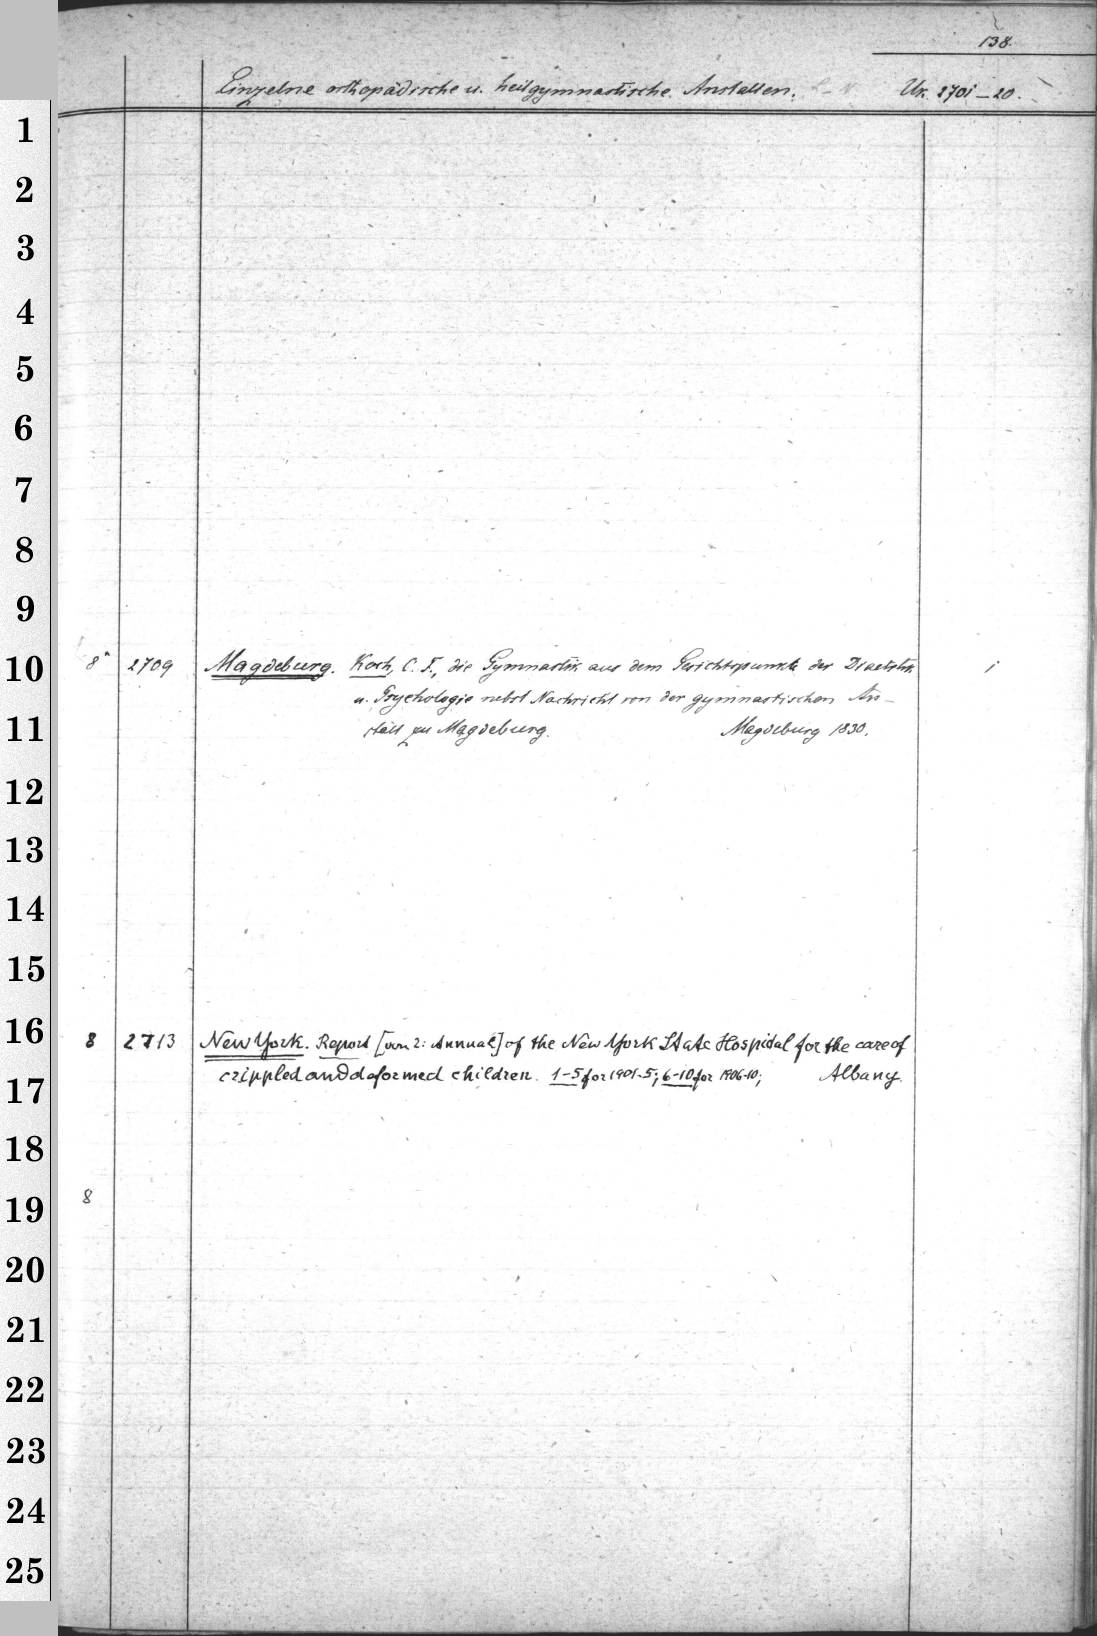 138.
Einzelne orthopädische u. heilgymnastische Anstalten. L-N Uk. 2701-20.
1
2
3
4
5
6
7
8
9
10
8° 2709 Magdeburg. Koch, C. F., die Gymnastik aus dem Gesichtspunkte der Diaetetik 1
u. Psychologie nebst Nachricht von der gymnastischen An-
11
stalt zu Magdeburg. Magdeburg 1830.
12
13
14
15
16
8 2713 New York. Report [von 2: Annual] of the New York State Hospital for the care of
17
crippled and deformed children. 1-5 for 1901-5; 6-10 for 1906-10; Albany.
18
19
8
20
21
22
23
24
25